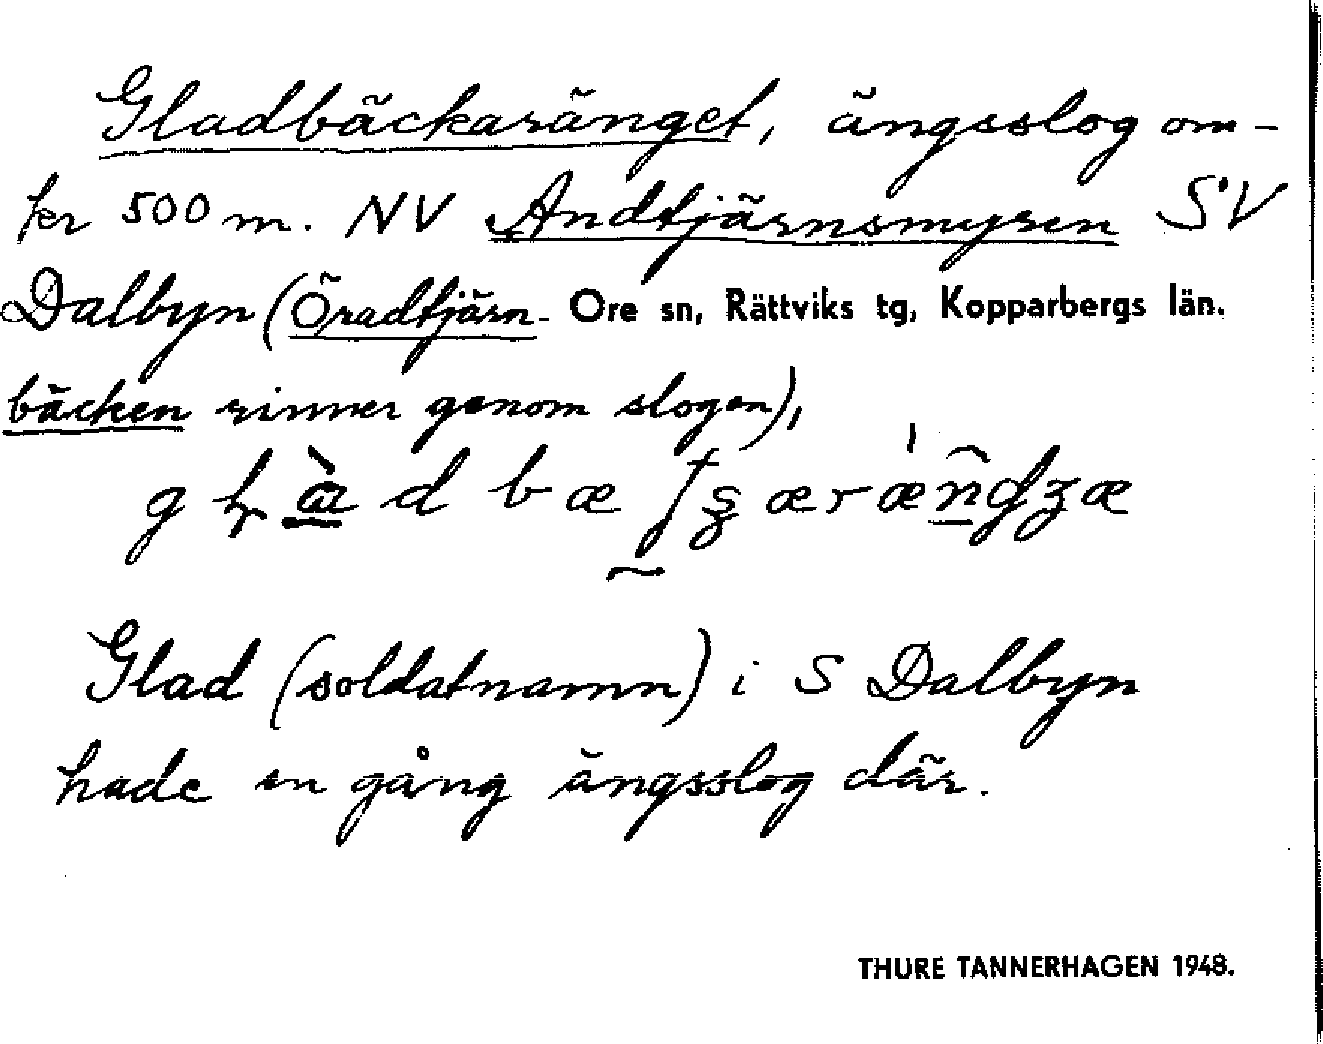 Gladbäckaränget, ängsslog om-
kr 500 m. NV Andtjärnsmyren SV
Dalbyn (Öradtjärn- Ore sn, Rättviks tg, Kopparbergs län.
bäcken rinner genom slogen),
Glad (soldatnamn) i S Dalbyn
hade en gång ängsslog där.
THURE TANNERHAGEN 1948.